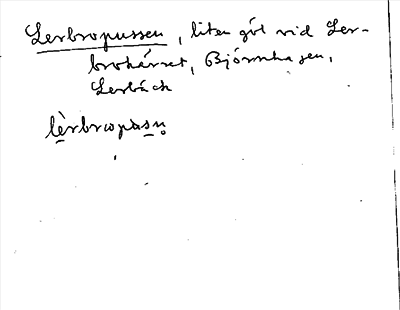 Lerbropussen, liten göl vid Ler-
brokärret, Björnhagen,
Lerbäck
lèrbrωpasn̥